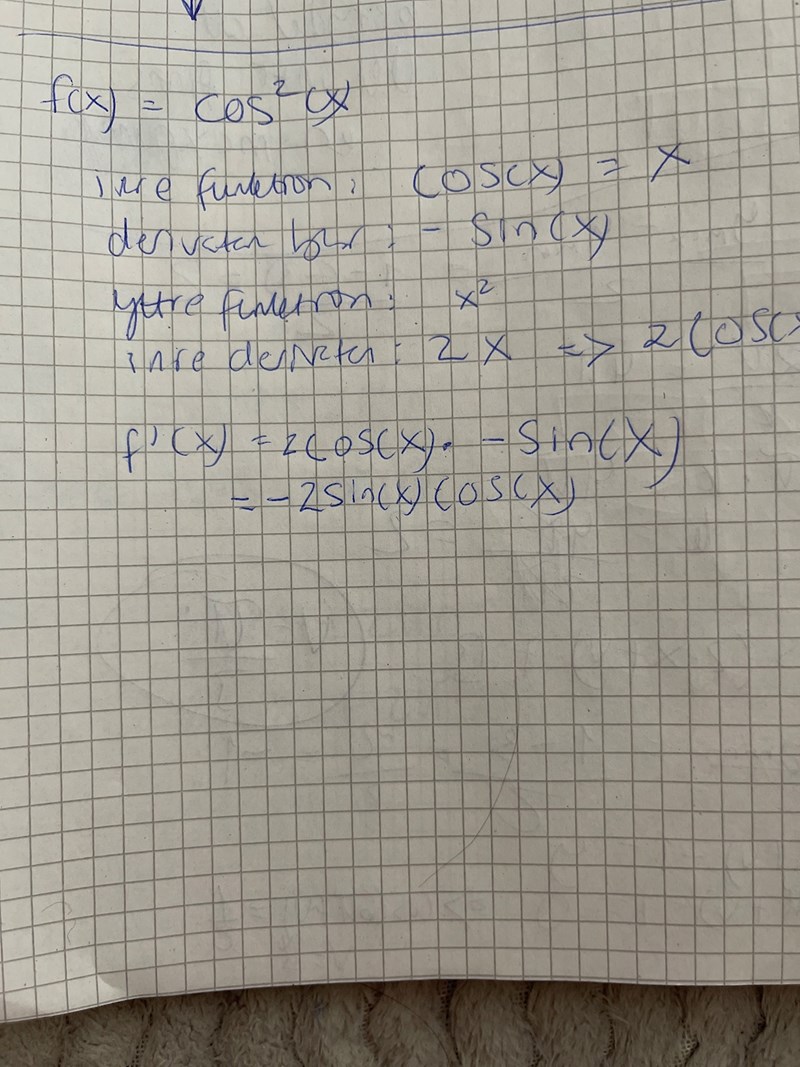 f(x) = cos²(x)
inre funktion: cos(x) = x
derivatan blir: - sin(x)
yttre funktion: x²
inre derivatan: 2x => 2cos(x
f'(x) = 2cos(x) · - sin(x)
= -2sin(x)cos(x)